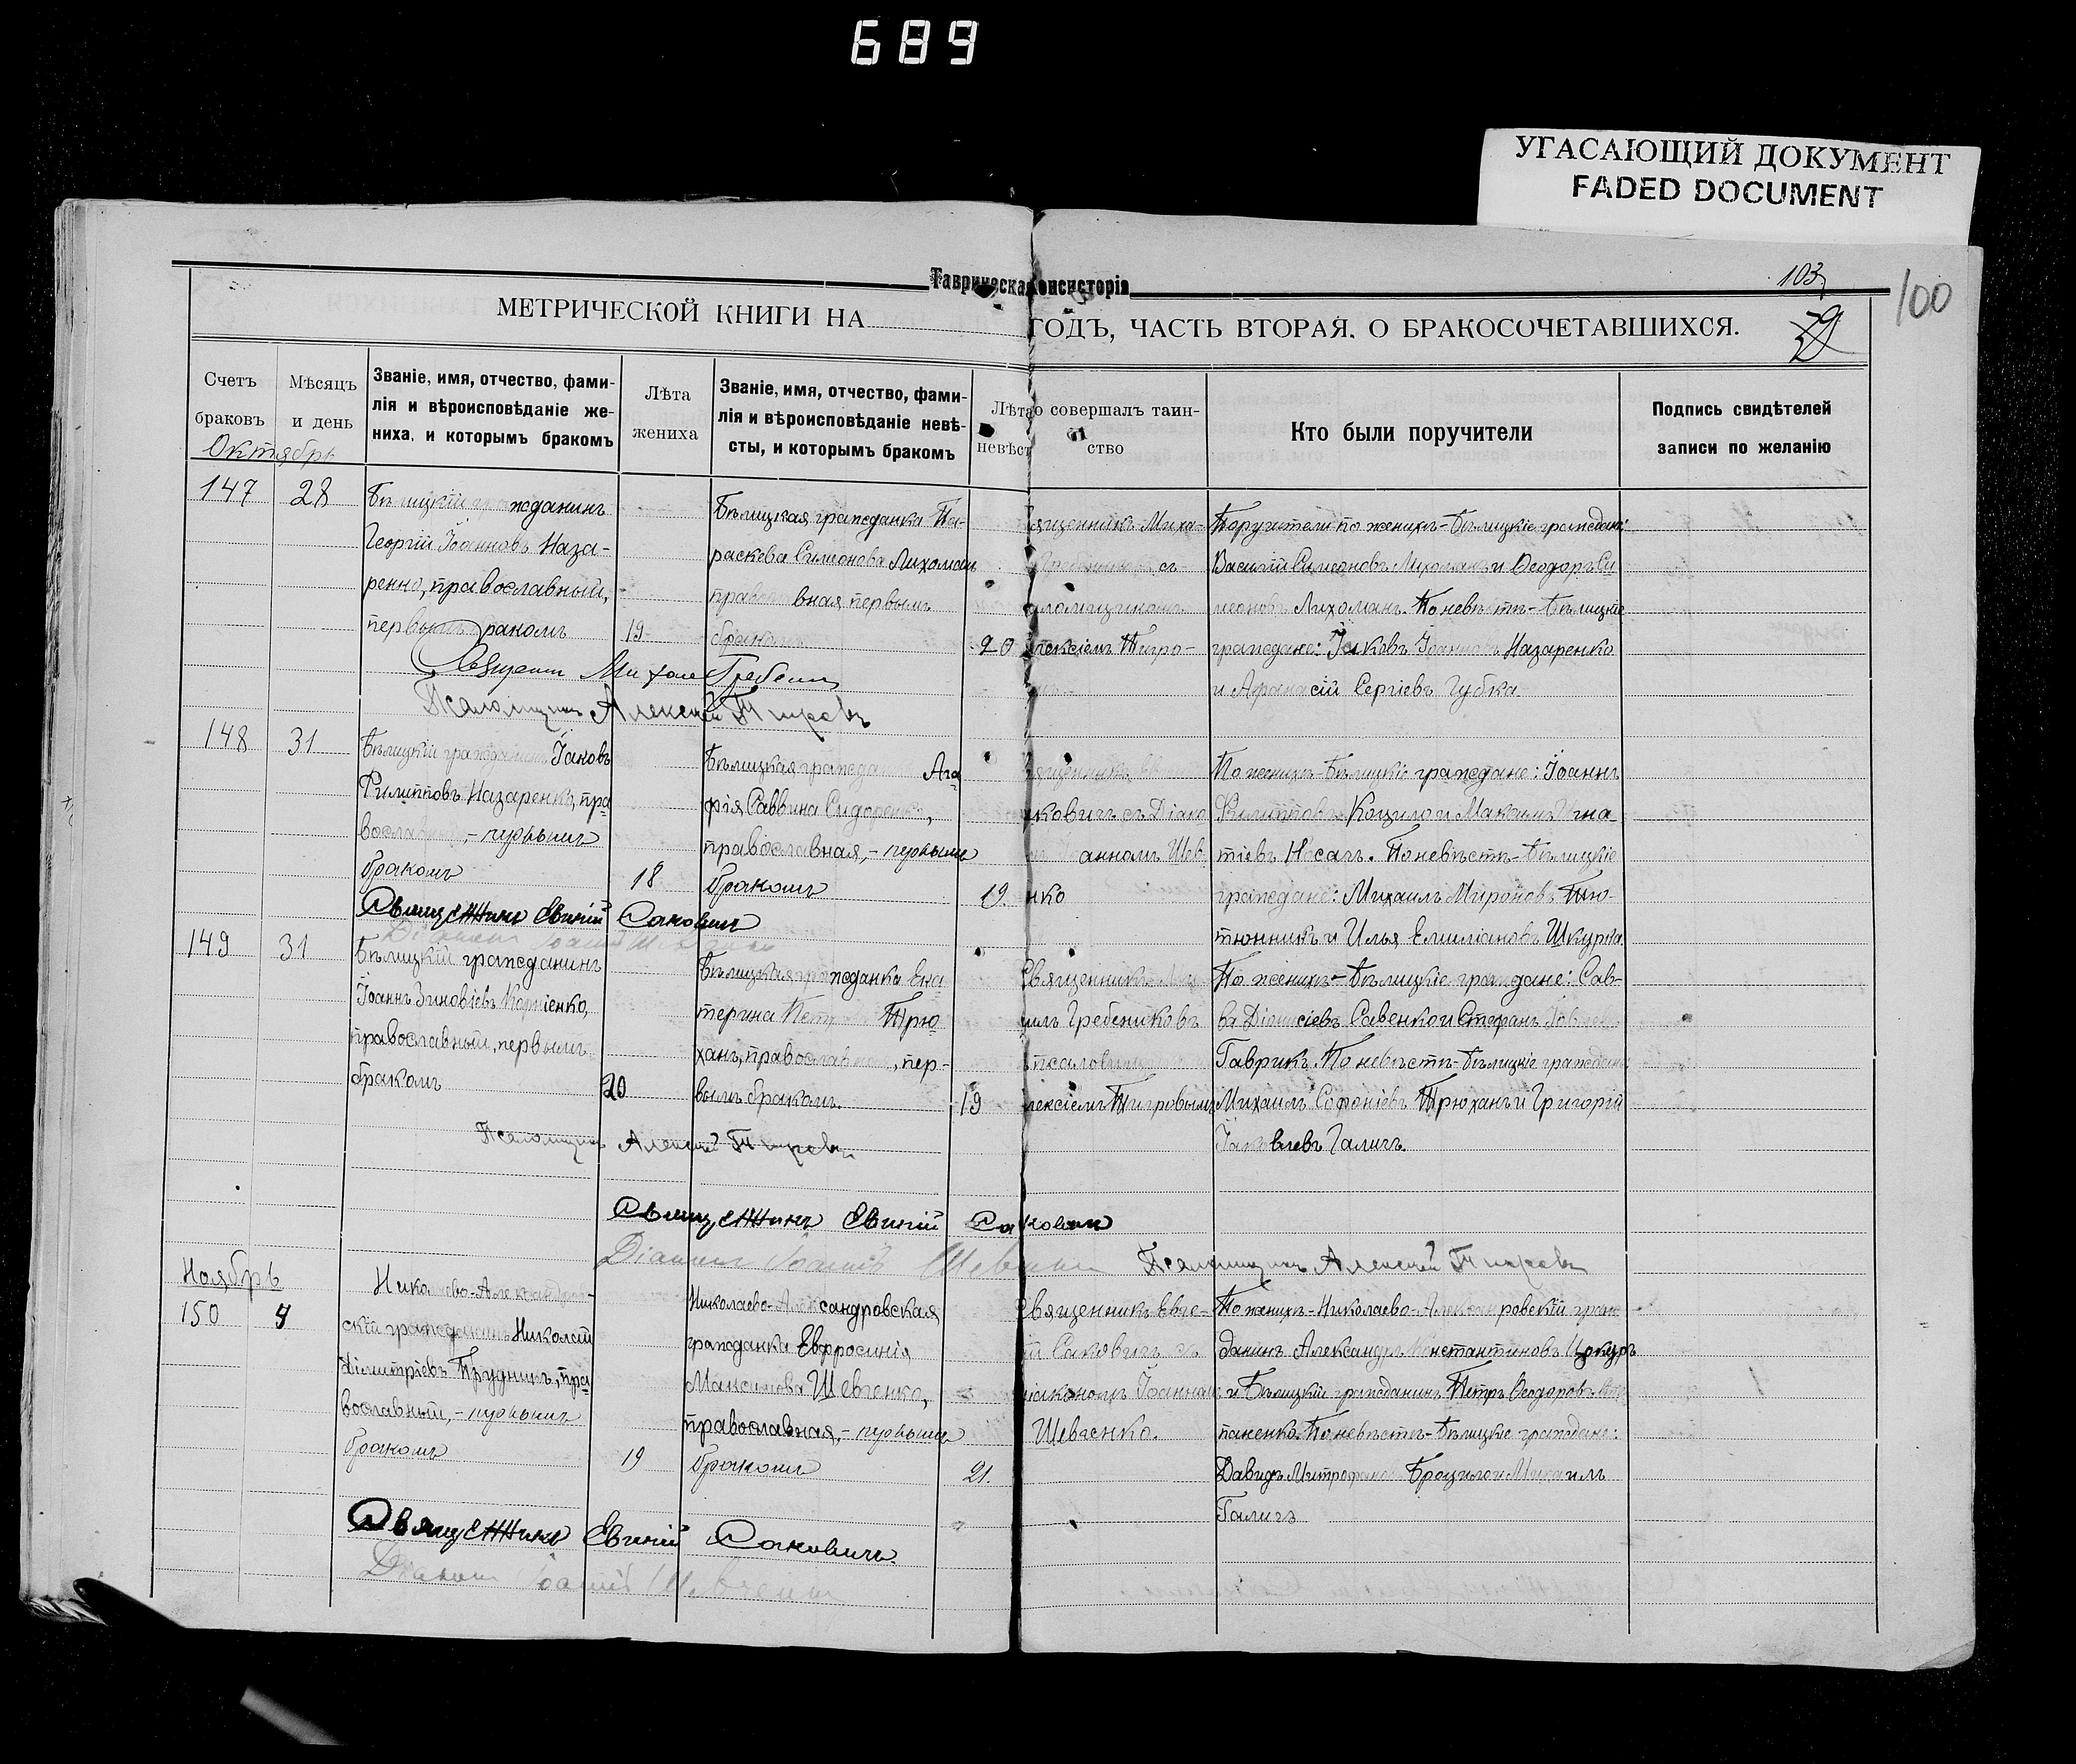 689
УГАСАЮЩИЙ ДОКУМЕНТ
FADED DOCUMENT
Таврическая Консисторія
103
100
МЕТРИЧЕСКОЙ КНИГИ НА
ГОДЪ, ЧАСТЬ ВТОРАЯ, О БРАКОСОЧЕТАВШИХСЯ.
59
Счетъ
браковъ
Мѣсяцъ
и день
Званіе, имя, отчество, фами-
лія и вѣроисповѣданіе же-
ниха, и которымъ бракомъ
Лѣта
жениха
Званіе, имя, отчество, фами-
лія и вѣроисповѣданіе невѣ-
сты, и которымъ бракомъ
Лѣта
невѣст
о совершалъ таин-
ство
Кто были поручители
Подпись свидѣтелей
записи по желанію
Октябрь
147
28
Бѣлицкій гражданинъ
Георгій Іоанновъ Наза-
ренко, православный,
первымъ бракомъ
19
Бѣлицкая гражданка Па-
раскева Симеонова Лихоман
православная первымъ
бракомъ
20
священникъ Миха-
Гребениковъ съ
псаломщикомъ
Алексіемъ Тигро-
Поручители по женихѣ - Бѣлицкіе граждане:
Василій Симеоновъ Лихоманъ и Ѳеодоръ Си
меоновъ Лихоманъ. По невѣстѣ - Бѣлицкіе
граждане: Іаковъ Іоанновъ Назаренко
и Афанасій Сергіевъ Губка.
Священ Михаил Гребени
Псаломщикъ Алексей Тигровъ
148
31
Бѣлицкій гражданинъ Іаковъ
Филипповъ Назаренко, пра
вославный, - первымъ
бракомъ
18
Бѣлицкая гражданка Ага
фія Саввина Сидоренко,
православная, - первымъ
бракомъ
19.
священникъ
ковичъ съ Діако
Іоанномъ Шев
нко
По женихѣ - Бѣлицкіе граждане: Іоаннъ
Филипповъ Коцило и Максимъ Игна-
тіевъ Носачъ. По невѣстѣ - Бѣлицкіе
граждане: Михаилъ Мироновъ Тю-
тюнникъ и Илья Емиліановъ Шкурка.
Священникъ Евгеній Саковичъ
Діаконъ Іоаннъ Шевченко
149
31
Бѣлицкій гражданинъ
Іоаннъ Зиновіевъ Корніенко,
православный, первымъ
бракомъ
20
Бѣлицкая гражданка Ека
терина Петр Трю
ханъ, православная, пер-
вымъ бракомъ.
19
Священникъ Ми
илъ Гребениковъ
псаломщ
лексіемъ Тигровымъ
По женихѣ - Бѣлицкіе граждане: Сав-
ва Діонисіевъ Савенко и Стефанъ
Гаврикъ. По невѣстѣ - Бѣлицкіе граждане
Михаилъ Софоніевъ Трюханъ и Григорій
Іаковлевъ Галичъ.
Псаломщикъ Алексей Тигровъ
Священникъ Евгеній Саковичъ
Діаконъ Іоаннъ Шевченко Псаломщикъ Алексей Тигровъ
Ноябрь
150
4
Николаево-Александров-
скій гражданинъ Николай
Димитріевъ Прудникъ, пра
вославный, - первымъ
бракомъ
19
Николаево-Александровская
гражданка Евфросинія
Максимова Шевченко,
православная, - первымъ
бракомъ
21.
Священникъ Евге-
ій Саковичъ съ
діакономъ Іоанном
Шевченко.
По женихѣ - Николаево-Александровскій граж
данинъ Александръ Константиновъ Цокуръ
и Бѣлицкій гражданинъ Петръ Ѳеодоровъ
паненко. По невѣстѣ - Бѣлицкіе граждане:
Давидъ Митрофановъ Броцило и Михаилъ
Галичъ
Священникъ Евгеній Саковичъ.
Діаконъ Іоаннъ Шевченко